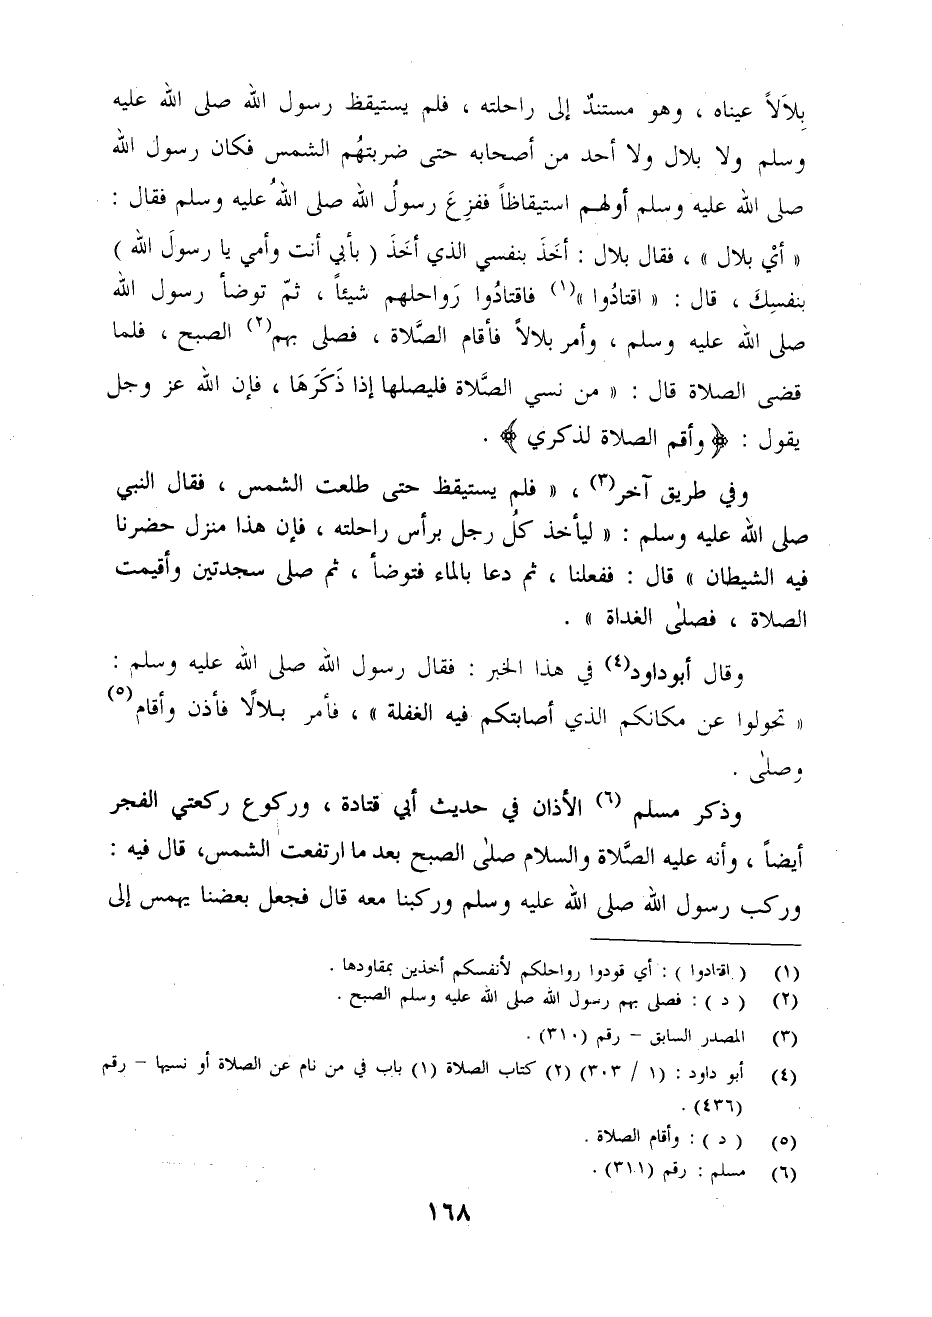 بِلاَلاً عيناه ، وهو مستندٌ إلى راحلته ، فلم يستيقظ رسول الله صلى الله عليه
وسلم ولا بلال ولا أحد من أصحابه حتى ضربتهُم الشمس فكان رسول الله
صلى الله عليه وسلم أولهم استيقاظاً ففزِعَ رسولُ الله صلى اللهُ عليه وسلم فقال :
« أيْ بلال » ، فقال بلال : أخَذَ بنفسي الذي أخَذَ ( بأبي أنت وأمي يا رسولَ الله )
بنفسِكَ ، قال : « اقتادُوا »(١) فاقتادُوا رَواحلهم شيئاً ، ثمّ توضأ رسول الله
صلى الله عليه وسلم ، وأمر بلالاً فأقام الصَّلاة ، فصلى بهم(٢) الصبح ، فلما
قضى الصلاة قال : « من نسي الصَّلاة فليصلها إذا ذَكَرَهَا ، فإن الله عز وجل
يقول : ﴿ وأقم الصلاة لذكري ﴾ .
وفي طريق آخر(٣) ، « فلم يستيقظ حتى طلعت الشمس ، فقال النبي
صلى الله عليه وسلم : « ليأخذ كلُ رجل برأس راحلته ، فإن هذا منزل حضرنا
فيه الشيطان » قال : ففعلنا ، ثم دعا بالماء فتوضأ ، ثم صلى سجدتين وأقيمت
الصلاة ، فصلىٰ الغداة » .
وقال أبوداود(٤) في هذا الخبر : فقال رسول الله صلى الله عليه وسلم :
« تحولوا عن مكانكم الذي أصابتكم فيه الغفلة » ، فأمر بلالًا فأذن وأقام(٥)
وصلىٰ .
وذكر مسلم (٦) الأذان في حديث أبي قتادة ، وركوع ركعتي الفجر
أيضاً ، وأنه عليه الصَّلاة والسلام صلىٰ الصبح بعد ما ارتفعت الشمس، قال فيه :
وركب رسول الله صلى الله عليه وسلم وركبنا معه قال فجعل بعضنا يهمس إلى
(١) ( اقتادوا ) : أي قودوا رواحلكم لأنفسكم أخذين بمقاودها .
(٢) ( د ) : فصلى بهم رسول الله صلى الله عليه وسلم الصبح .
(٣) المصدر السابق – رقم (٣١٠) .
(٤) أبو داود : (١ / ٣٠٣) (٢) كتاب الصلاة (١) باب في من نام عن الصلاة أو نسيها – رقم
(٤٣٦) .
(٥) ( د ) : وأقام الصلاة .
(٦) مسلم : رقم (٣١١) .
١٦٨